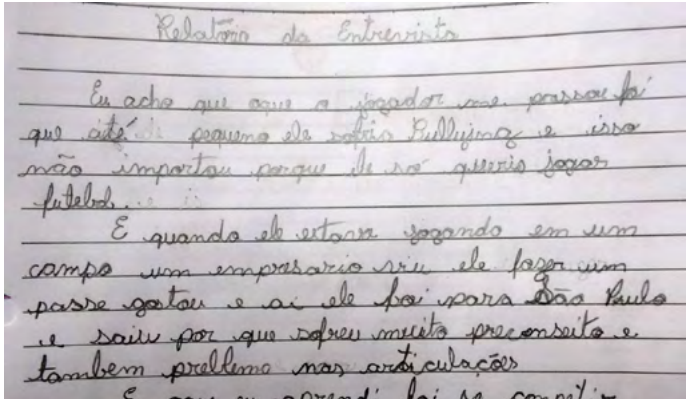 Relatório da Entrevista
Eu acho que oque o jogador me passou foi
que até pequeno ele sofria Bullying e isso
não importou porque ele só queria jogar
futebol.
E quando ele estava jogando em um
campo um empresario viu ele fazer um
passe gostou e ai ele foi para São Paulo
e saiu por que sofreu muito preconseito e
tambem problema nas articulações
E que eu aprendi foi se